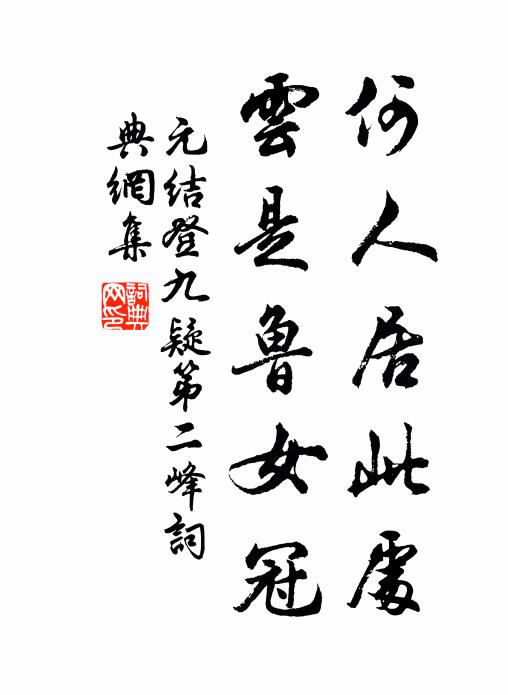 何人居此處
雲是魯女冠
元結登九疑第二峰詞
典網集
詞典網印